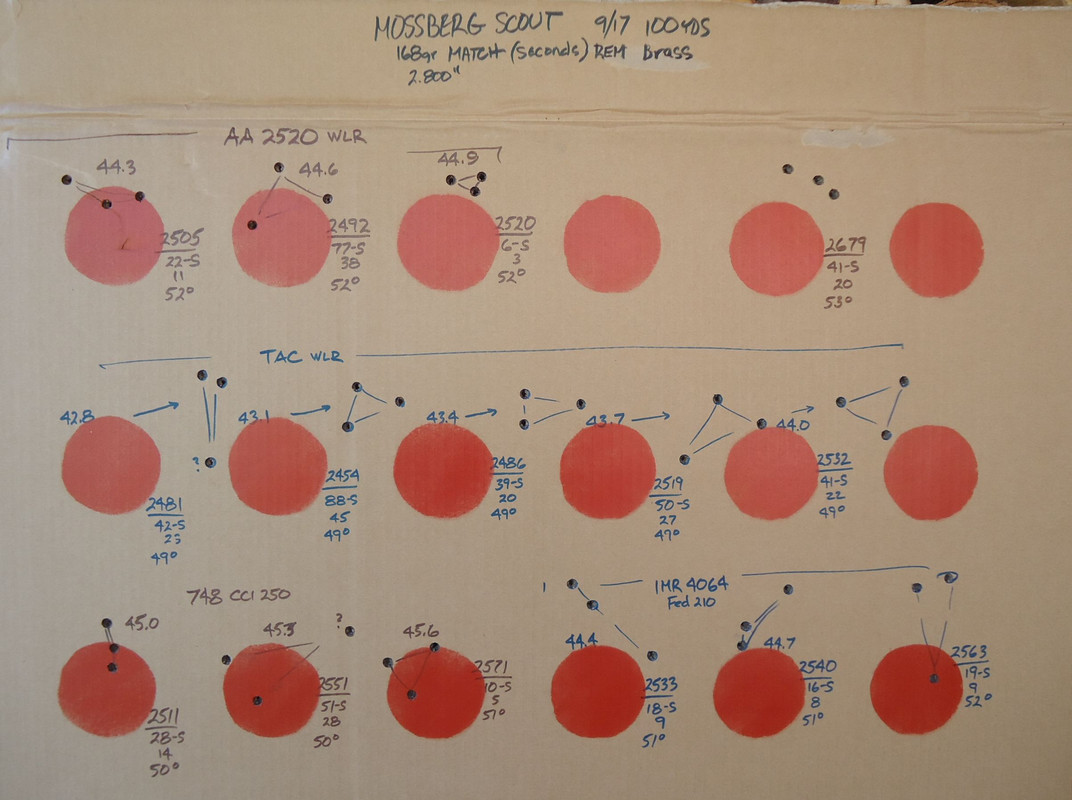 MOSSBERG SCOUT 9/17 100YDS
168gr MATCH (seconds) REM Brass
2.800"
AA 2520 WLR
44.3
44.6
44.9
2505
22-S
11
52°
2492
77-S
38
52°
2520
6-S
3
52°
2679
41-S
20
53°
TAC WLR
42.8
43.1
43.4
43.7
44.0
?
2481
42-S
23
49°
2454
88-S
45
49°
2486
39-S
20
49°
2519
50-S
27
49°
2532
41-S
22
49°
748 CCI 250
45.0
45.3
?
45.6
2511
28-S
14
50°
2551
51-S
28
50°
2571
10-S
5
51°
1
IMR 4064
Fed 210
44.4
44.7
2533
18-S
9
51°
2540
16-S
8
51°
2563
19-S
9
52°